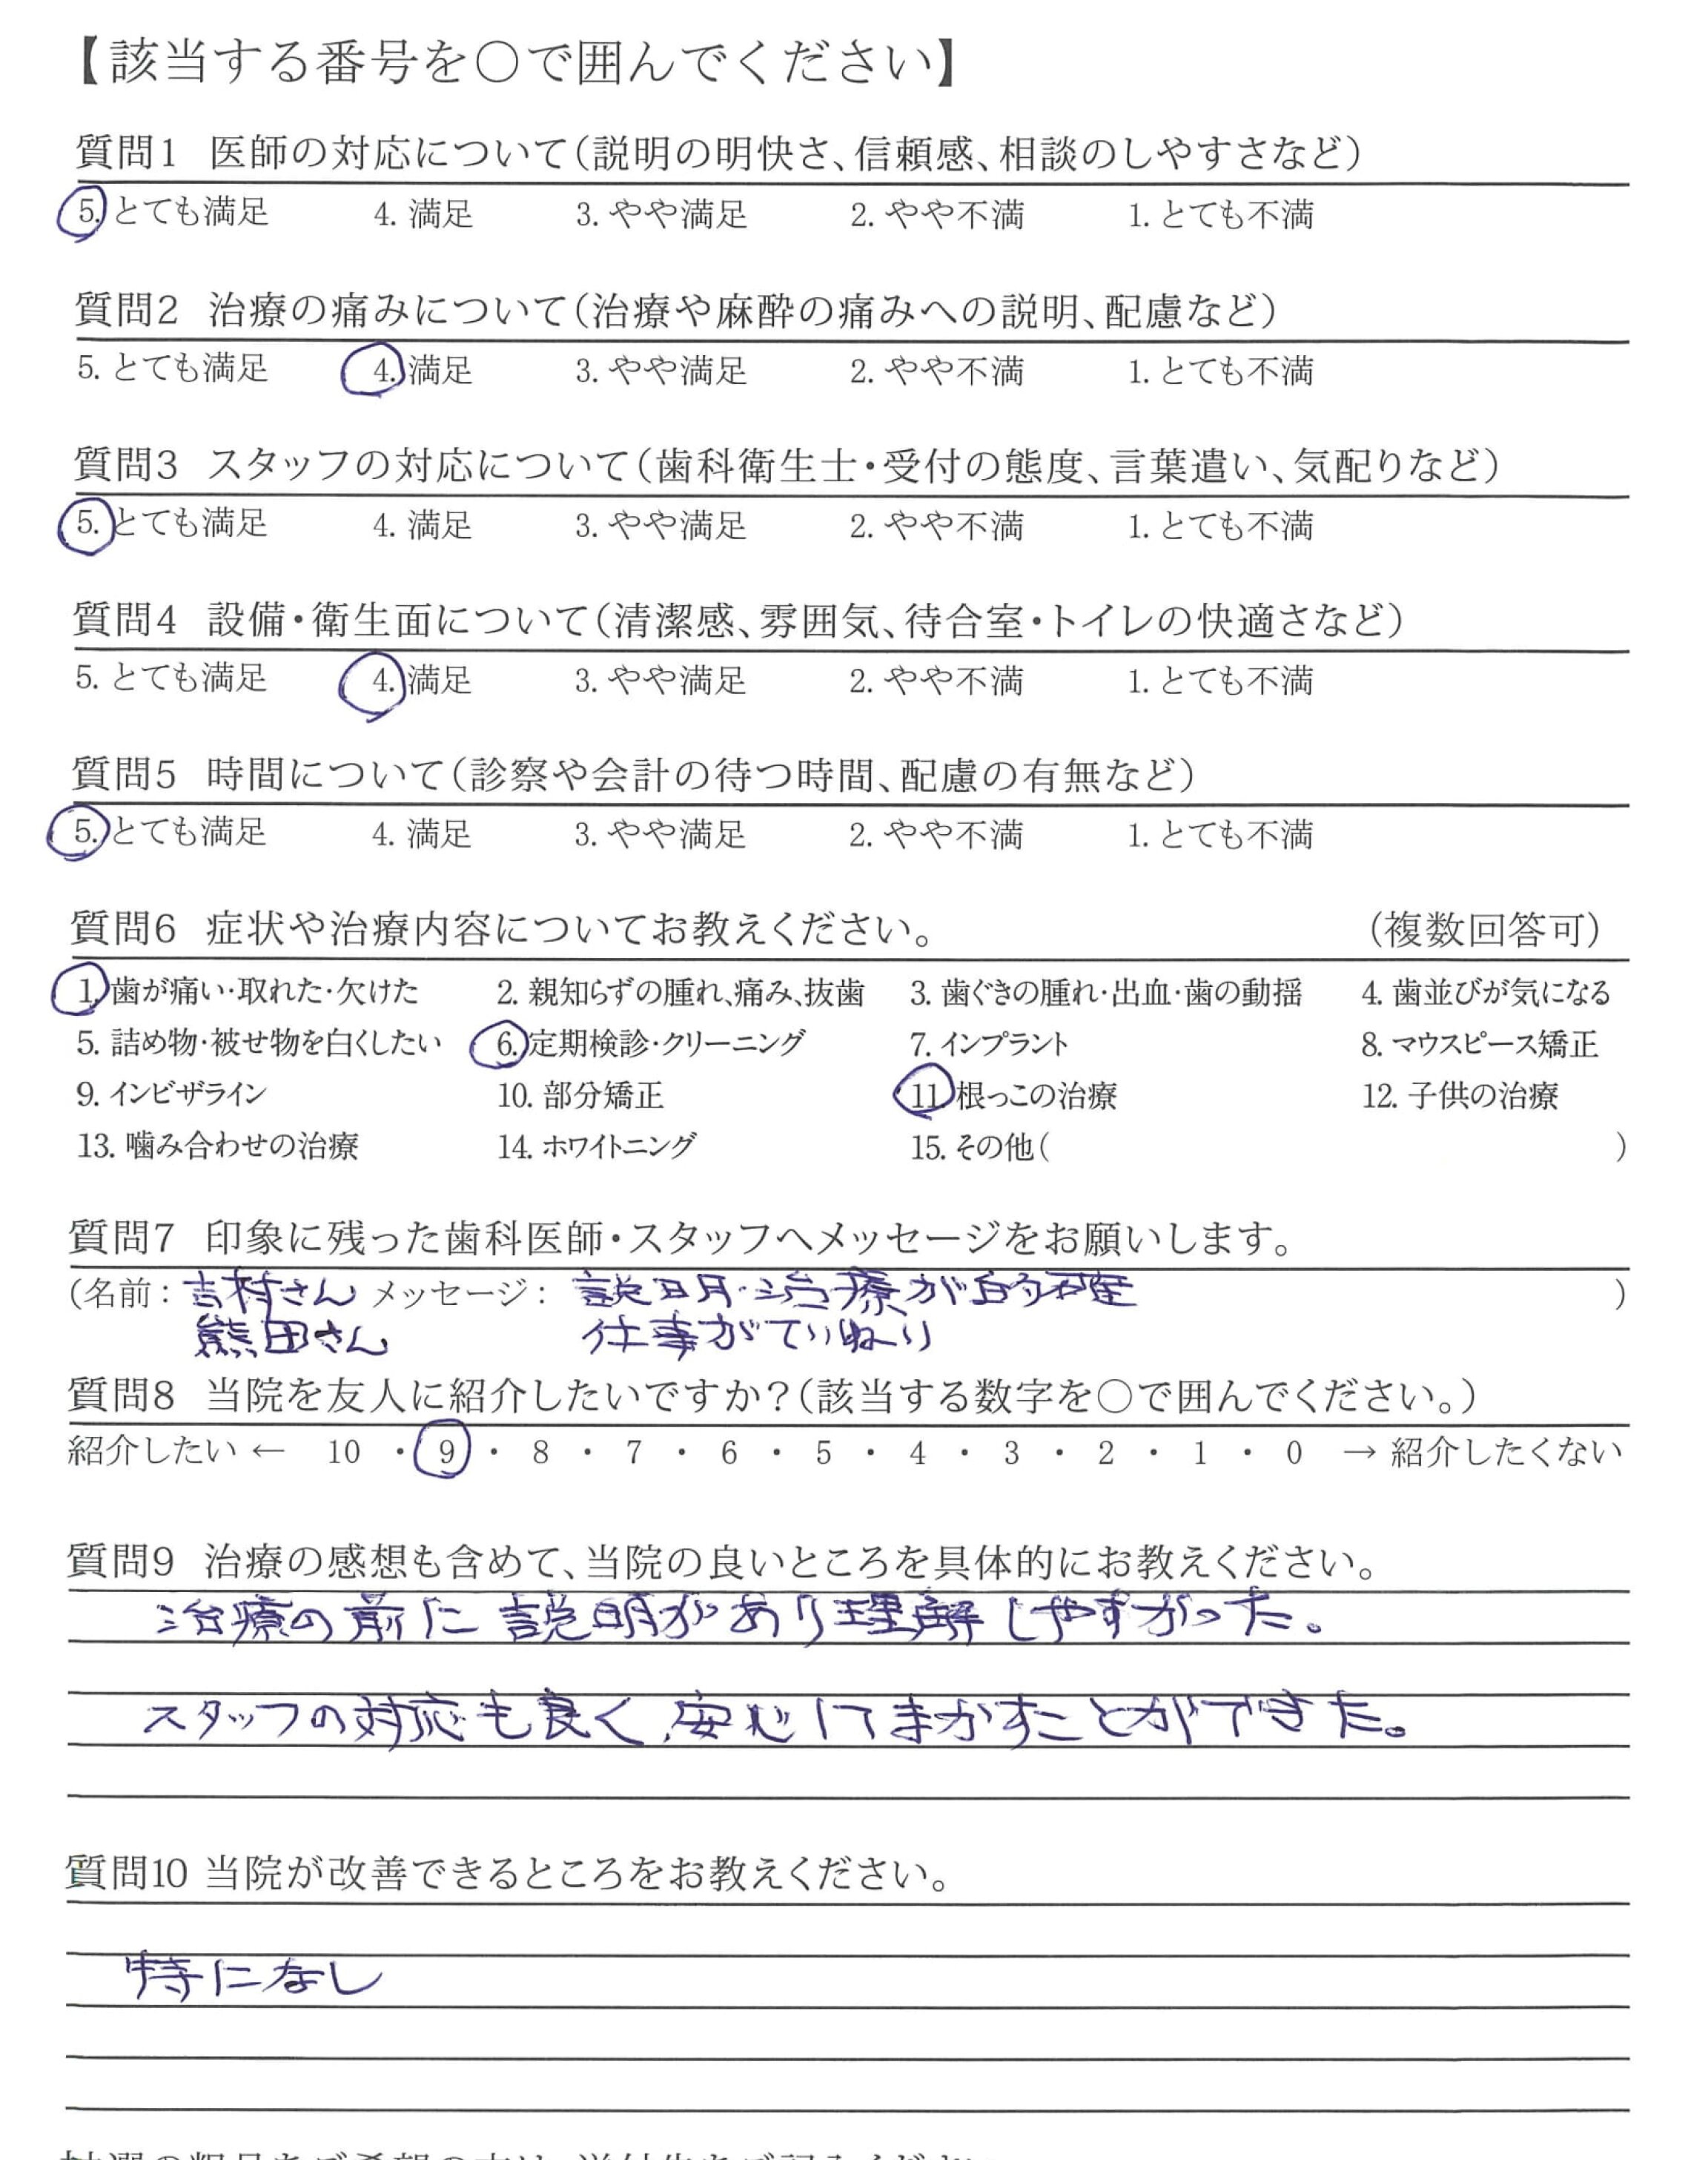 【該当する番号を○で囲んでください】
質問1 医師の対応について(説明の明快さ、信頼感、相談のしやすさなど)
5. とても満足 4. 満足 3. やや満足 2. やや不満 1. とても不満
質問2 治療の痛みについて(治療や麻酔の痛みへの説明、配慮など)
5. とても満足 4. 満足 3. やや満足 2. やや不満 1. とても不満
質問3 スタッフの対応について(歯科衛生士・受付の態度、言葉遣い、気配りなど)
5. とても満足 4. 満足 3. やや満足 2. やや不満 1. とても不満
質問4 設備・衛生面について(清潔感、雰囲気、待合室・トイレの快適さなど)
5. とても満足 4. 満足 3. やや満足 2. やや不満 1. とても不満
質問5 時間について(診察や会計の待つ時間、配慮の有無など)
5. とても満足 4. 満足 3. やや満足 2. やや不満 1. とても不満
質問6 症状や治療内容についてお教えください。 (複数回答可)
1. 歯が痛い・取れた・欠けた 2. 親知らずの腫れ、痛み、抜歯 3. 歯ぐきの腫れ・出血・歯の動揺 4. 歯並びが気になる
5. 詰め物・被せ物を白くしたい 6. 定期検診・クリーニング 7. インプラント 8. マウスピース矯正
9. インビザライン 10. 部分矯正 11. 根っこの治療 12. 子供の治療
13. 噛み合わせの治療 14. ホワイトニング 15. その他( )
質問7 印象に残った歯科医師・スタッフへメッセージをお願いします。
(名前: 吉村さん メッセージ: 説明・治療が的確 )
熊田さん 仕事がていねい
質問8 当院を友人に紹介したいですか?(該当する数字を○で囲んでください。)
紹介したい ← 10 ・ 9 ・ 8 ・ 7 ・ 6 ・ 5 ・ 4 ・ 3 ・ 2 ・ 1 ・ 0 → 紹介したくない
質問9 治療の感想も含めて、当院の良いところを具体的にお教えください。
治療の前に説明があり理解しやすかった。
スタッフの対応も良く、安心してまかすことができた。
質問10 当院が改善できるところをお教えください。
特になし